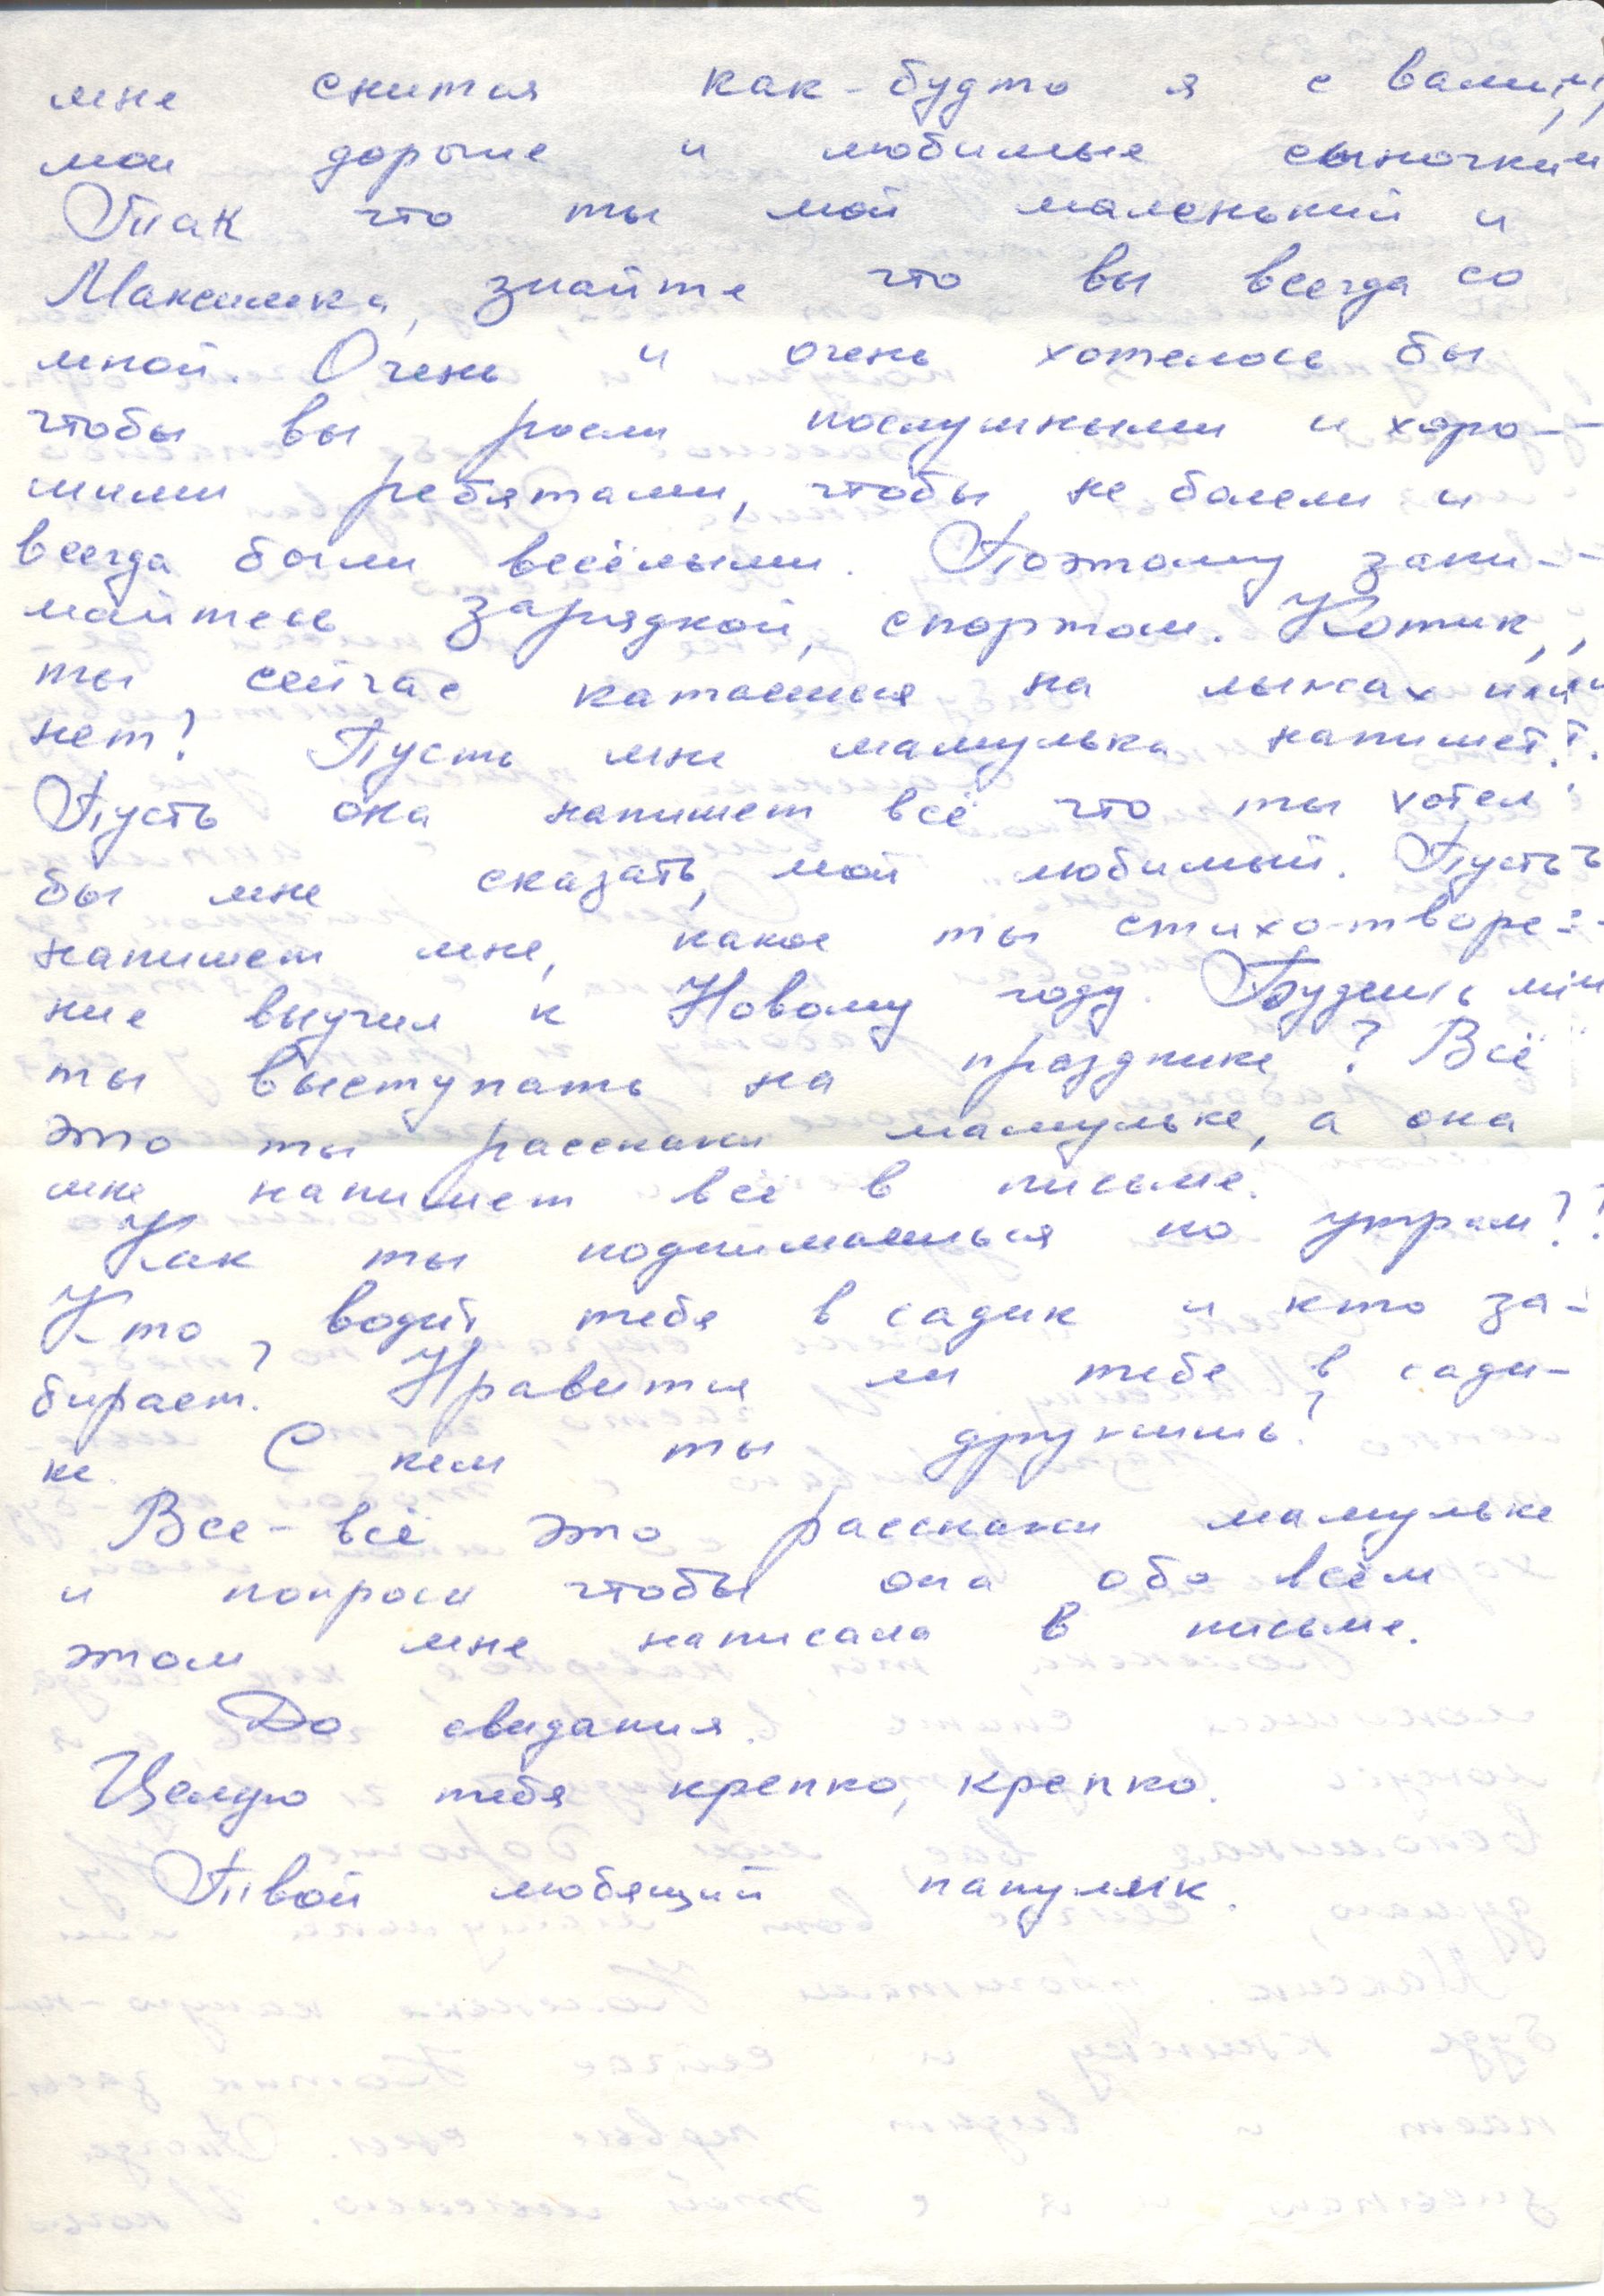 мне снится как-будто я с вами,
мои дорогие и любимые сыночки
Так что ты мой маленький и
Максимка, знайте что вы всегда со
мной. Очень и очень хотелось бы
чтобы вы росли послушными и хоро-
шими ребятами, чтобы не болели и
всегда были весёлыми. Поэтому зани-
майтесь зарядкой, спортом. Котик,
ты сейчас катаешься на лыжах или
нет? Пусть мне мамулька напишет.
Пусть она напишет всё что ты хотел
бы мне сказать, мой любимый. Пусть
напишет мне, какое ты стихотворе-
ние выучил к Новому году. Будешь ли
ты выступать на празднике? Всё
это ты расскажи мамульке, а она
мне напишет всё в письме.
Как ты поднимаешься по утрам?
Кто водит тебя в садик и кто за-
бирает? Нравится ли тебе в сади-
ке. С кем ты дружишь?
Все-всё это расскажи мамульке
и попроси чтобы она обо всём
этом мне написала в письме.
До свидания.
Целую тебя крепко, крепко.
Твой любящий папулик.